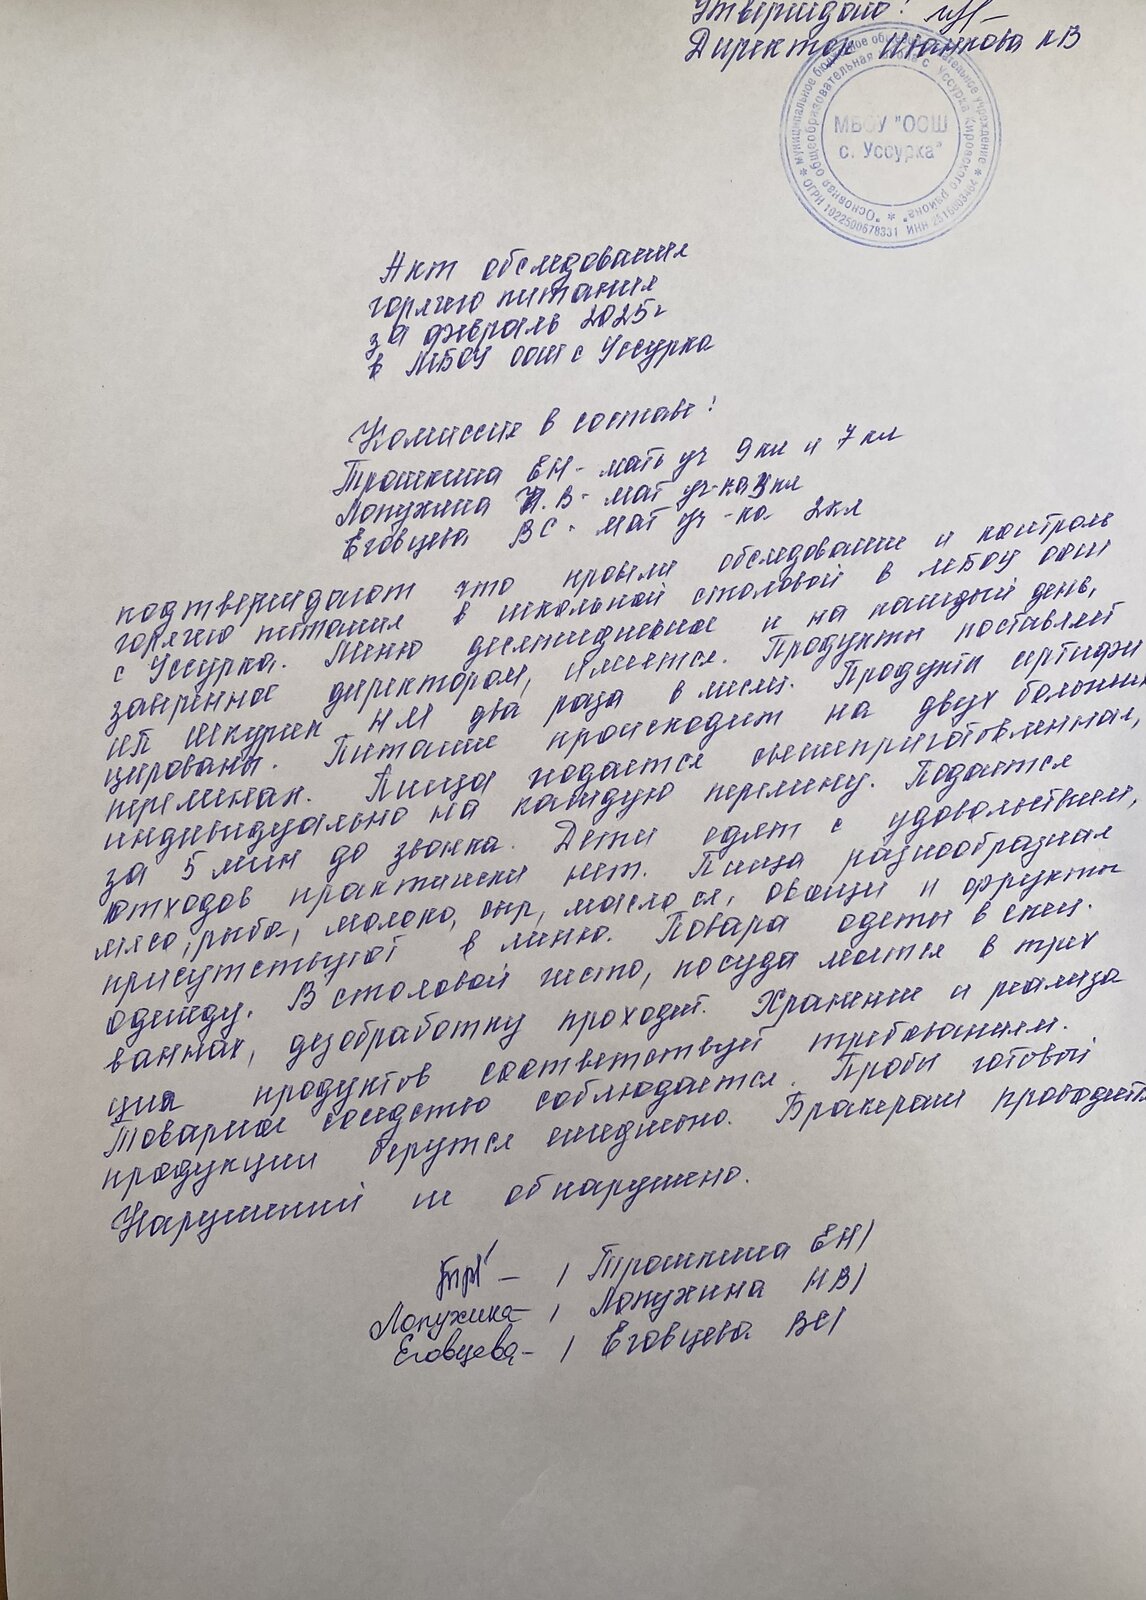 Утверждаю!
Директор К В
муниципальное бюджетное общеобразовательное учреждение
"Основная общеобразовательная школа с. Уссурка Кировского района"
ОГРН 1022500678331 ИНН
МБОУ "ООШ
с. Уссурка"
Акт обследования
горячего питания
за февраль 2025г
в МБОУ ООШ с Уссурка
Комиссия в составе:
Трошкина ЕН - мать уч 9 кл и 7 кл
Лопухина Н.В - мат уч-ка 3 кл
Еговцева ВС - мат уч-ка 2 кл
подтверждают что провели обследование и контроль
горячего питания в школьной столовой в МБОУ ООШ
с Уссурка. Меню десятидневное и на каждый день,
заверенное директором, имеется. Продукты поставляет
ИП НМ два раза в месяц. Продукты сертифи
цированы. Питание происходит на двух больших
переменах. Пища подается свежеприготовленная,
индивидуально на каждую перемену. Подается
за 5 мин до звонка. Дети едят с удовольствием,
отходов практически нет. Пища разнообразная
мясо, рыба, молоко, сыр, масло сл, овощи и фрукты
присутствуют в меню. Повара одеты в спец.
одежду. В столовой чисто, посуда моется в трех
ваннах, дезобработку проходит. Хранение и реализа
ция продуктов соответствует требованиям.
Товарное соседство соблюдается. Пробы готовой
продукции берутся ежедневно. Бракераж проводится
Нарушений не обнаружено.
/ Трошкина ЕН/
Лопухина / Лопухина НВ/
Еговцева / Еговцева ВС/